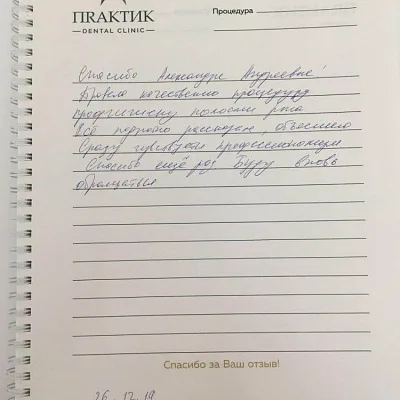 ПRАКТИК
DENTAL CLINIC
Процедура
Спасибо Александре Андреевне!
Провела качественно процедуру
профгигиену полости рта
Всё подробно рассказала, объяснила
Сразу чувствуется профессионализм
Спасибо ещё раз. Буду вновь
обращаться
Спасибо за Ваш отзыв!
26.12.19